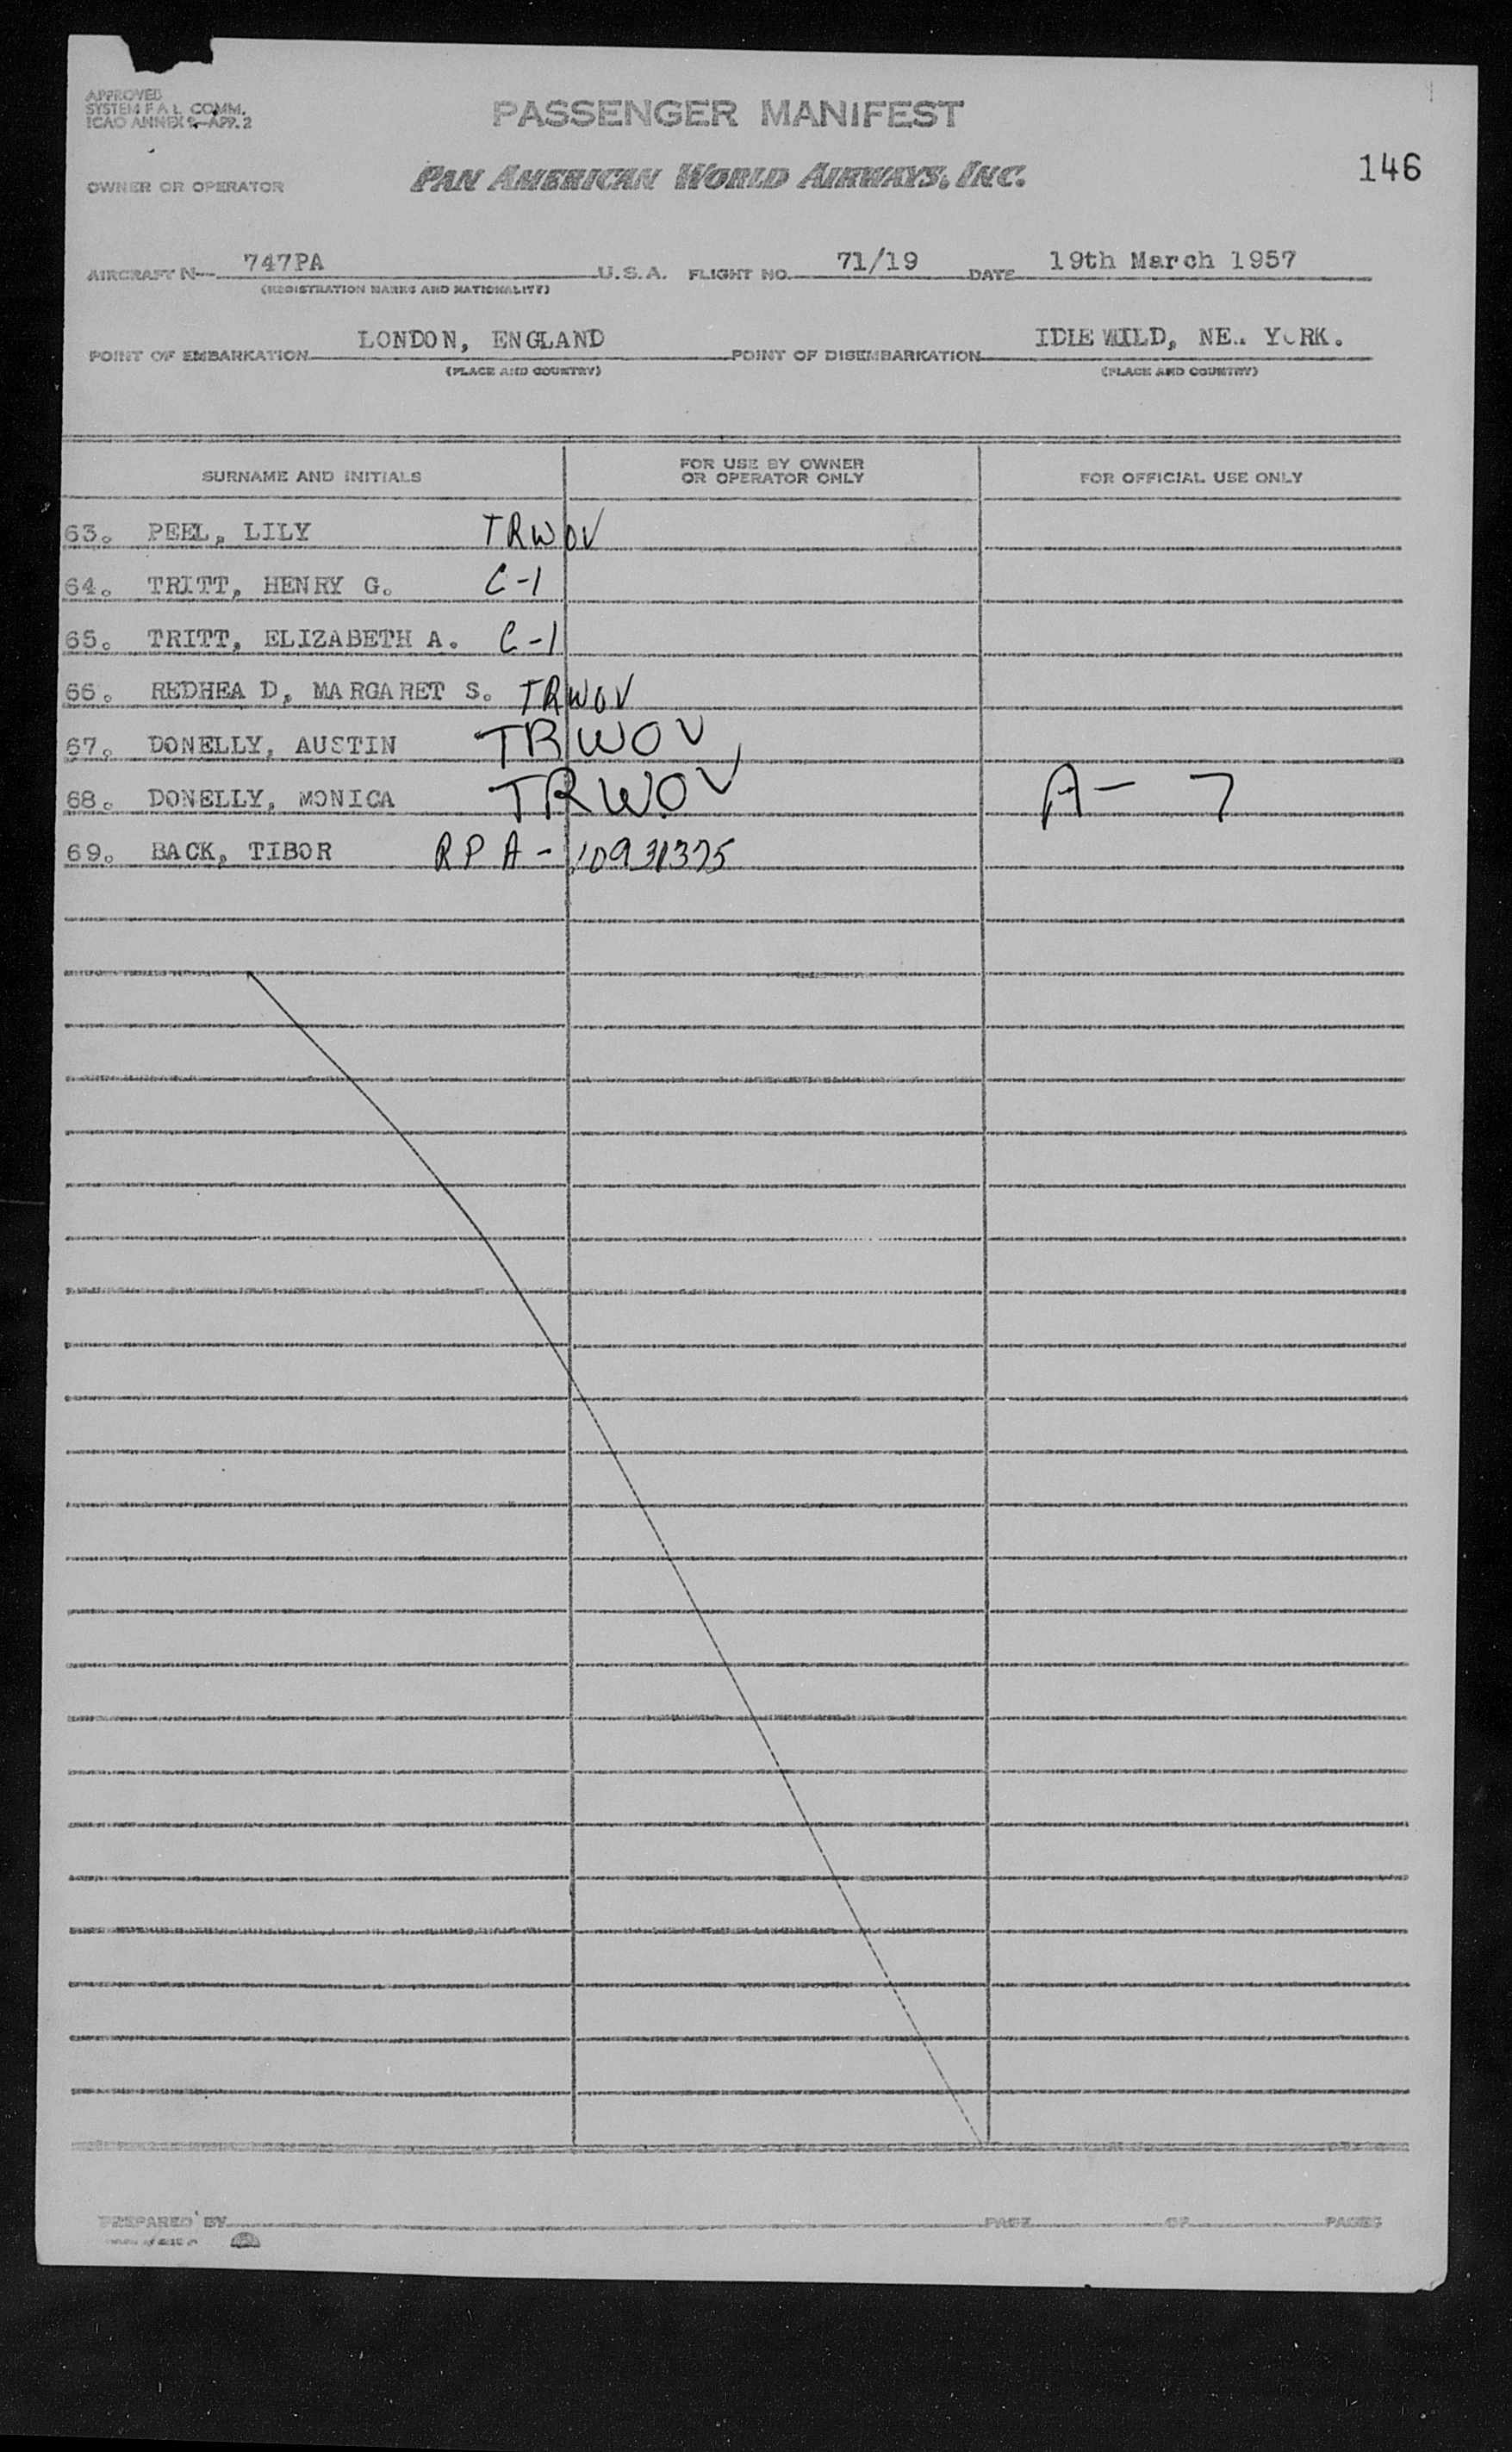 APPROVED
SYSTEM F.A.L. COMM.
ICAO ANNEX 9—APP. 2
PASSENGER MANIFEST
OWNER OR OPERATOR PAN AMERICAN WORLD AIRWAYS, INC.
146
AIRCRAFT N— 747PA U.S.A. FLIGHT NO. 71/19 DATE 19th March 1957
(REGISTRATION MARKS AND NATIONALITY)
POINT OF EMBARKATION LONDON, ENGLAND POINT OF DISEMBARKATION IDLEWILD, NE. YORK.
(PLACE AND COUNTRY) (PLACE AND COUNTRY)
SURNAME AND INITIALS FOR USE BY OWNER OR OPERATOR ONLY FOR OFFICIAL USE ONLY
63. PEEL, LILY TRWOV
64. TRITT, HENRY G. C-1
65. TRITT, ELIZABETH A. C-1
66. REDHEAD, MARGARET S. TRWOV
67. DONELLY, AUSTIN TRWOV
68. DONELLY, MONICA TRWOV A- 7
69. BACK, TIBOR RP A-10931375
PREPARED BY PAGE OF PAGES